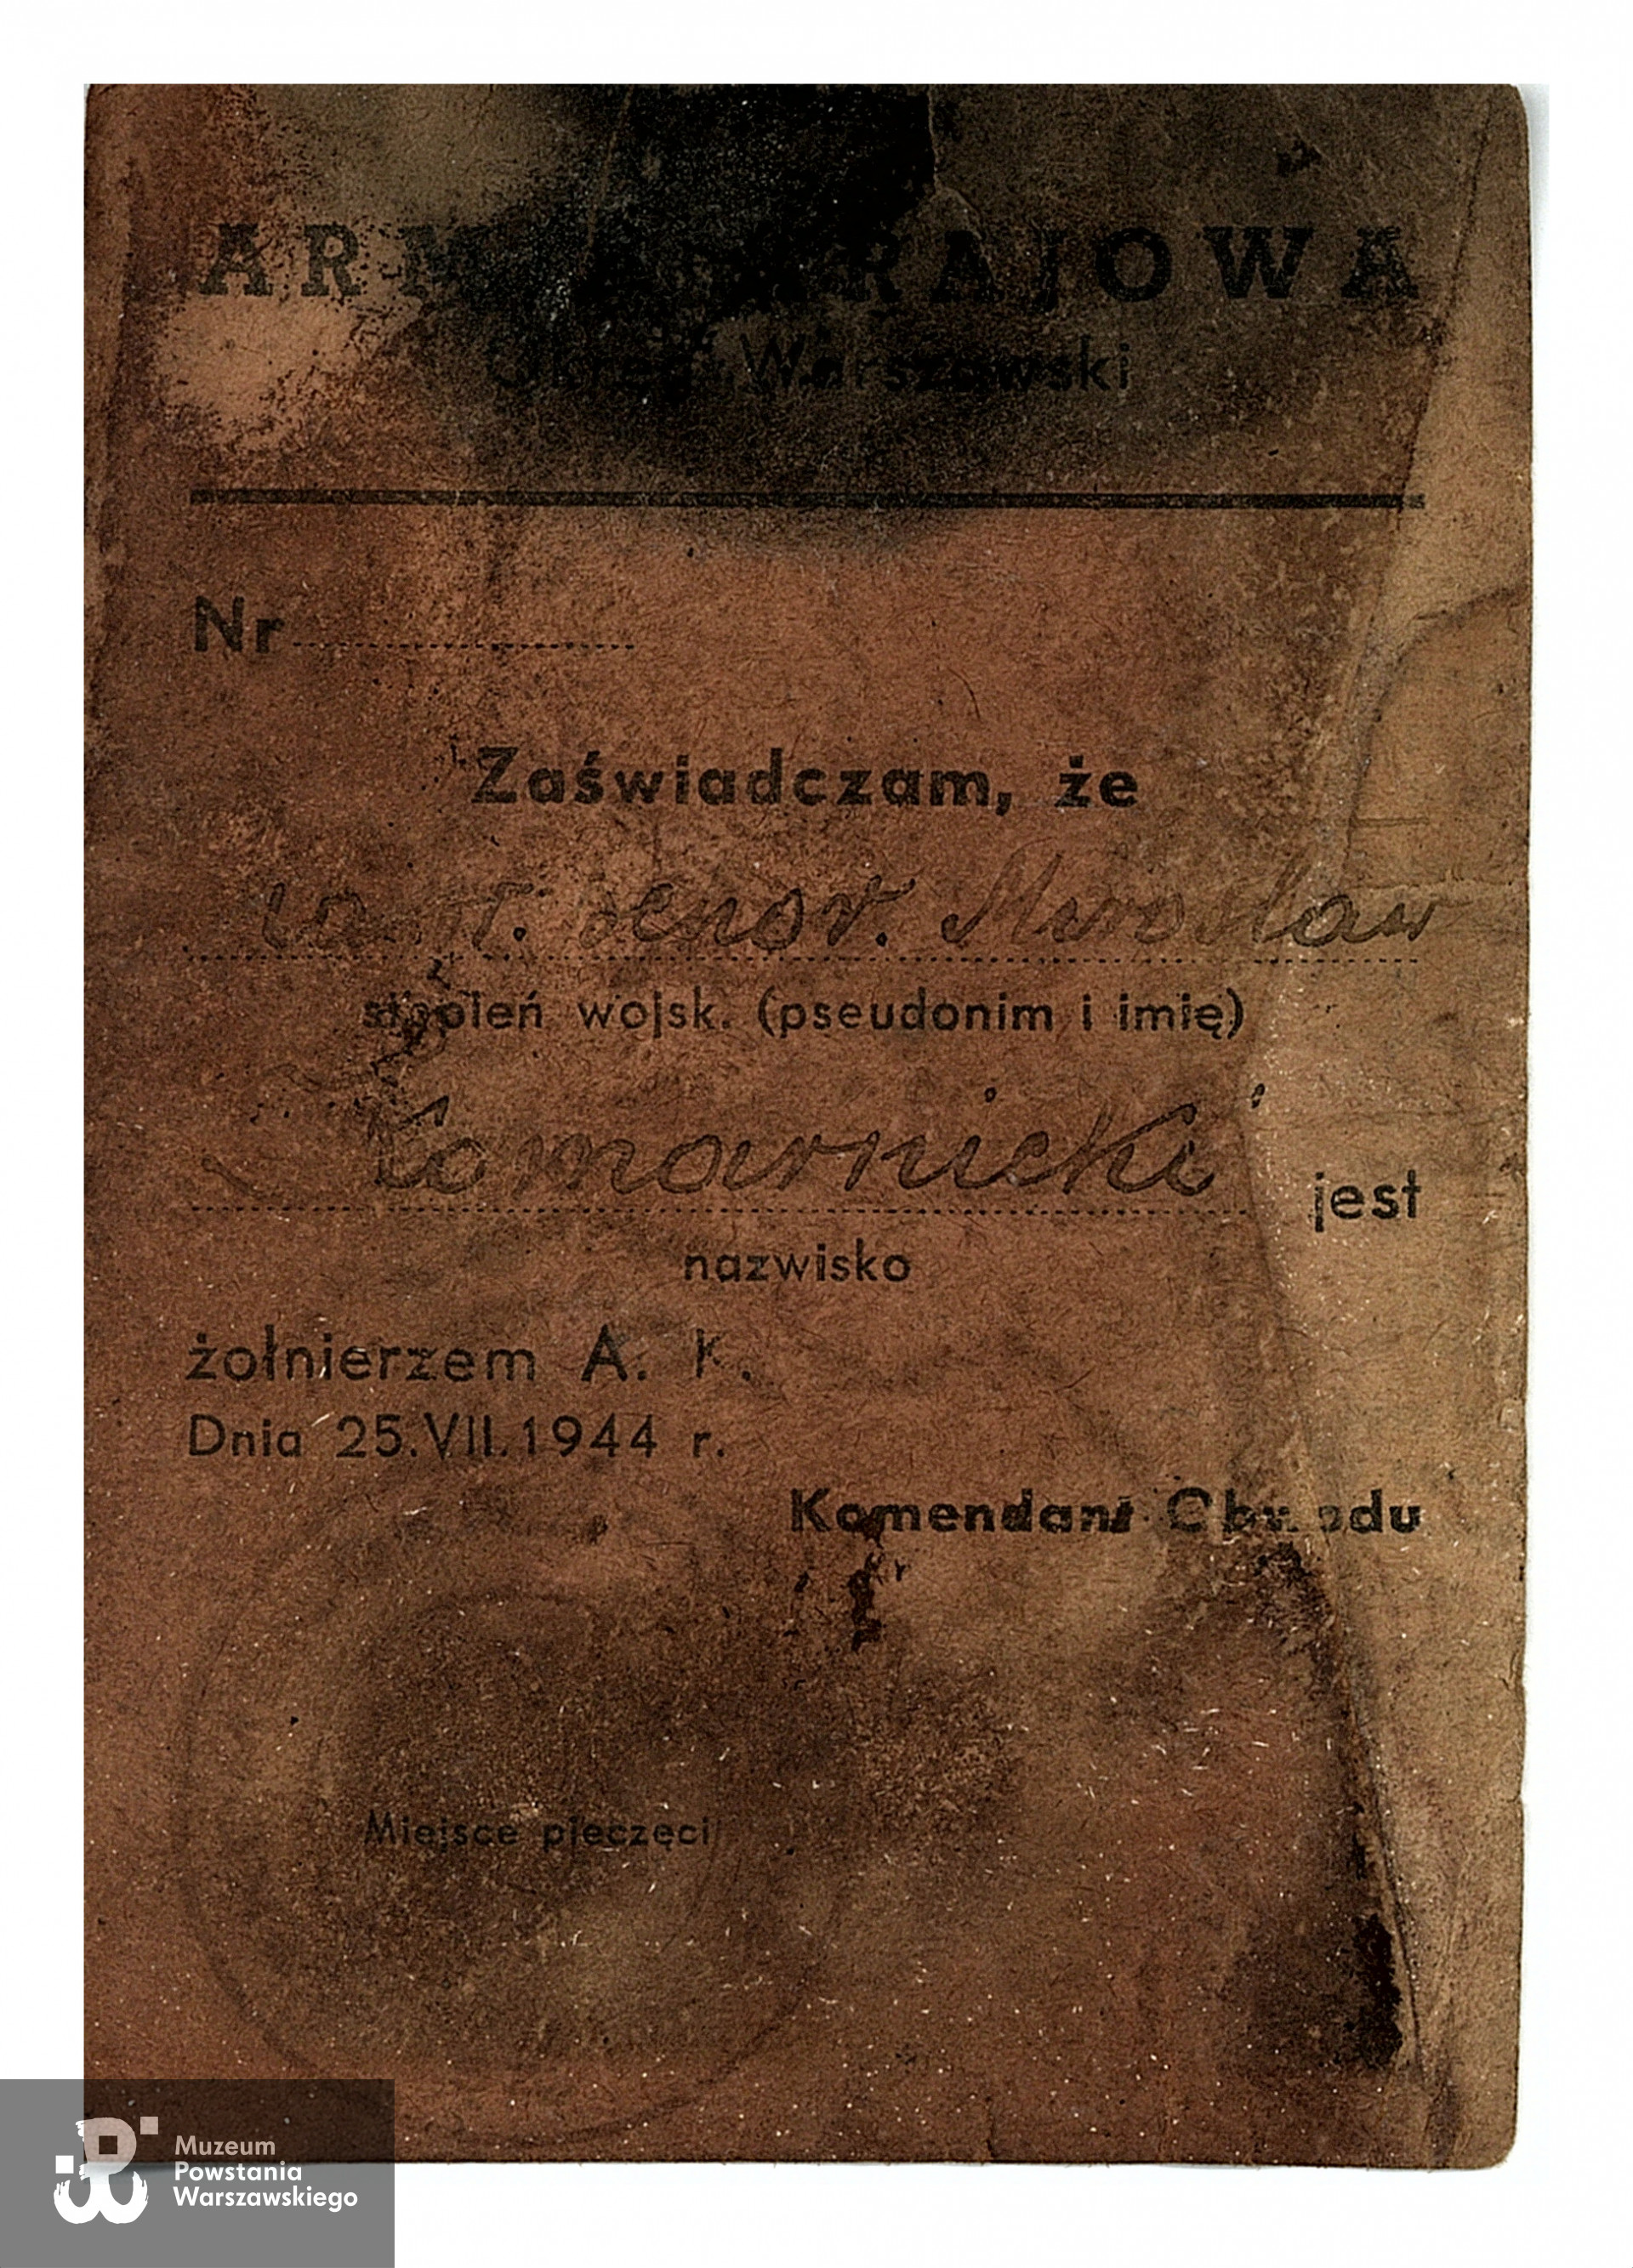 ARMIA KRAJOWA
Okręg Warszawski
Nr
Zaświadczam, że
Mirosław
stopień wojsk. (pseudonim i imię)
Komarnicki
jest
nazwisko
żołnierzem A. K.
Dnia 25.VII.1944 r.
Komendant Obwodu
Miejsce pieczęci
Muzeum
Powstania
Warszawskiego